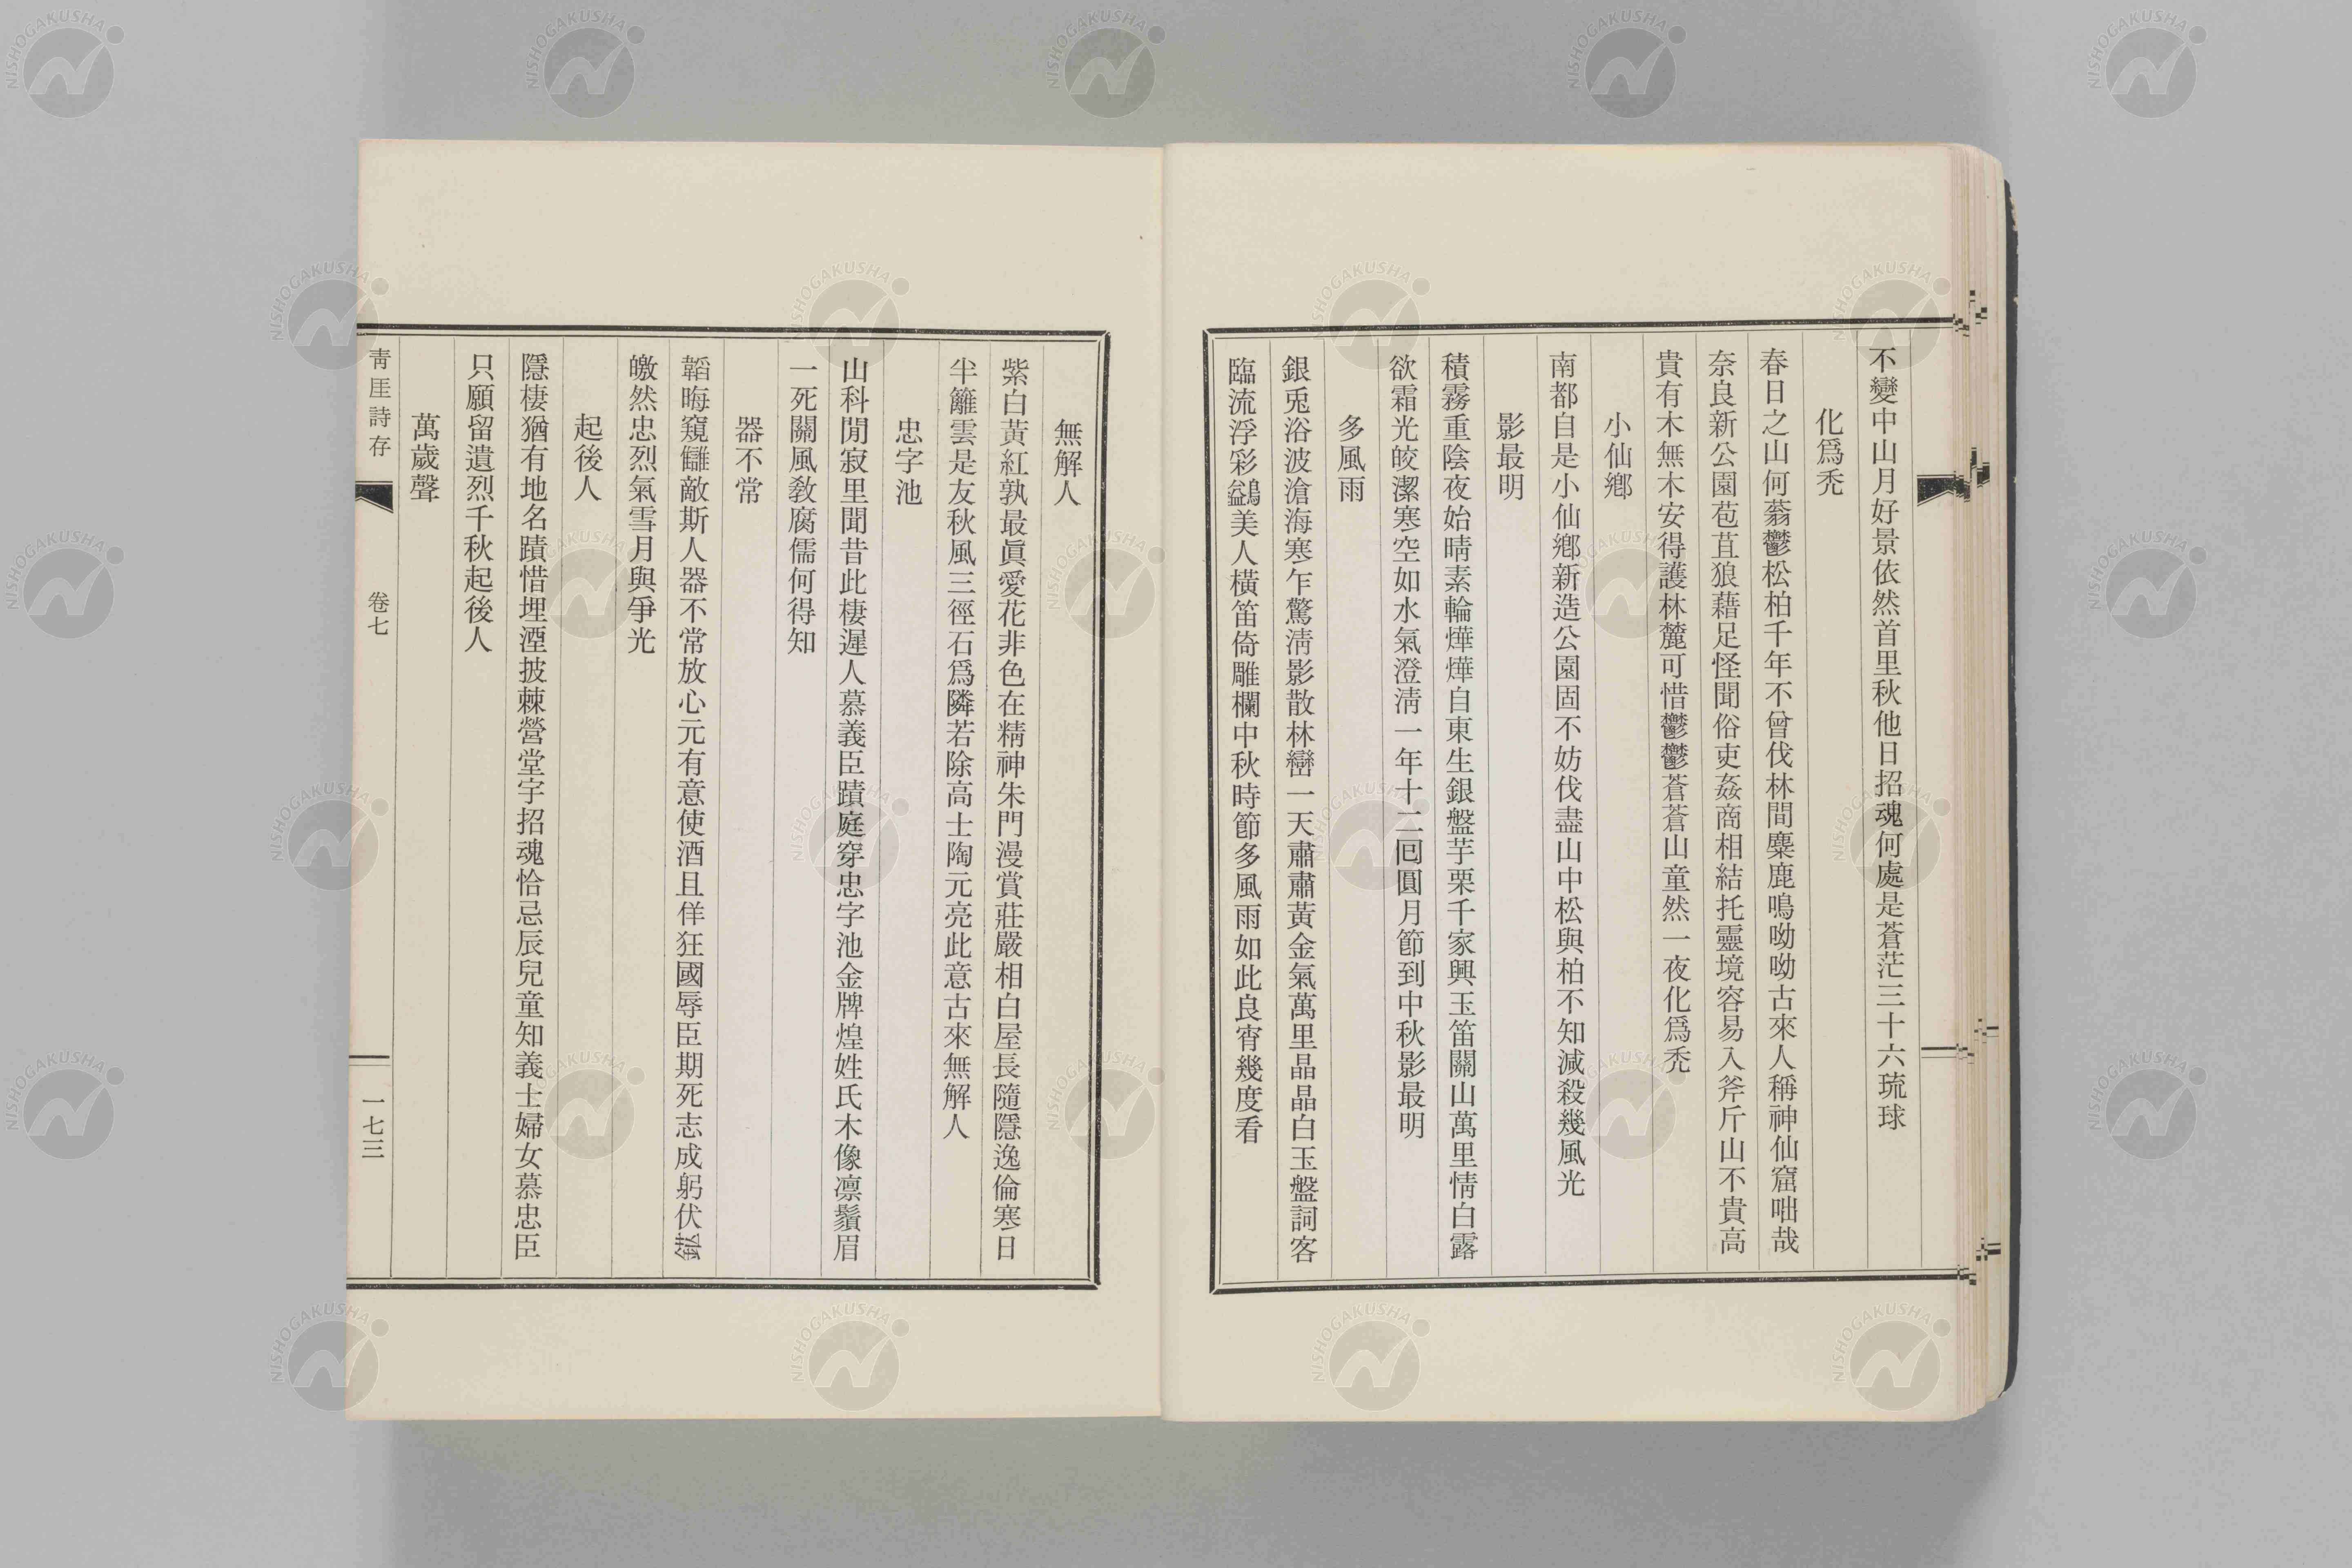 不變中山月好景依然首里秋他日招魂何處是蒼茫三十六琉球
化爲禿
春日之山何蓊鬱松柏千年不曾伐林間麋鹿鳴呦呦古來人稱神仙窟咄哉
奈良新公園苞苴狼藉足怪聞俗吏姦商相結托靈境容易入斧斤山不貴高
貴有木無木安得護林麓可惜鬱鬱蒼蒼山童然一夜化爲禿
小仙鄕
南都自是小仙鄕新造公園固不妨伐盡山中松與柏不知減殺幾風光
影最明
積霧重陰夜始晴素輪燁燁自東生銀盤芋栗千家興玉笛關山萬里情白露
欲霜光皎潔寒空如水氣澄淸一年十二回圓月節到中秋影最明
多風雨
銀兎浴波滄海寒乍驚淸影散林巒一天肅肅黃金氣萬里晶晶白玉盤詞客
臨流浮彩鷁美人橫笛倚雕欄中秋時節多風雨如此良宵幾度看
無解人
紫白黃紅孰最眞愛花非色在精神朱門漫賞莊嚴相白屋長隨隱逸倫寒日
半籬雲是友秋風三徑石爲隣若除高士陶元亮此意古來無解人
忠字池
山科閒寂里聞昔此棲遲人慕義臣蹟庭穿忠字池金牌煌姓氏木像凛鬚眉
一死關風敎腐儒何得知
器不常
韜晦窺讎敵斯人器不常放心元有意使酒且佯狂國辱臣期死志成躬伏鑕
皦然忠烈氣雪月與爭光
起後人
隱棲猶有地名蹟惜埋湮披棘營堂宇招魂恰忌辰兒童知義士婦女慕忠臣
只願留遺烈千秋起後人
萬歲聲
靑厓詩存
卷七
一七三
NISHOGAKUSHA